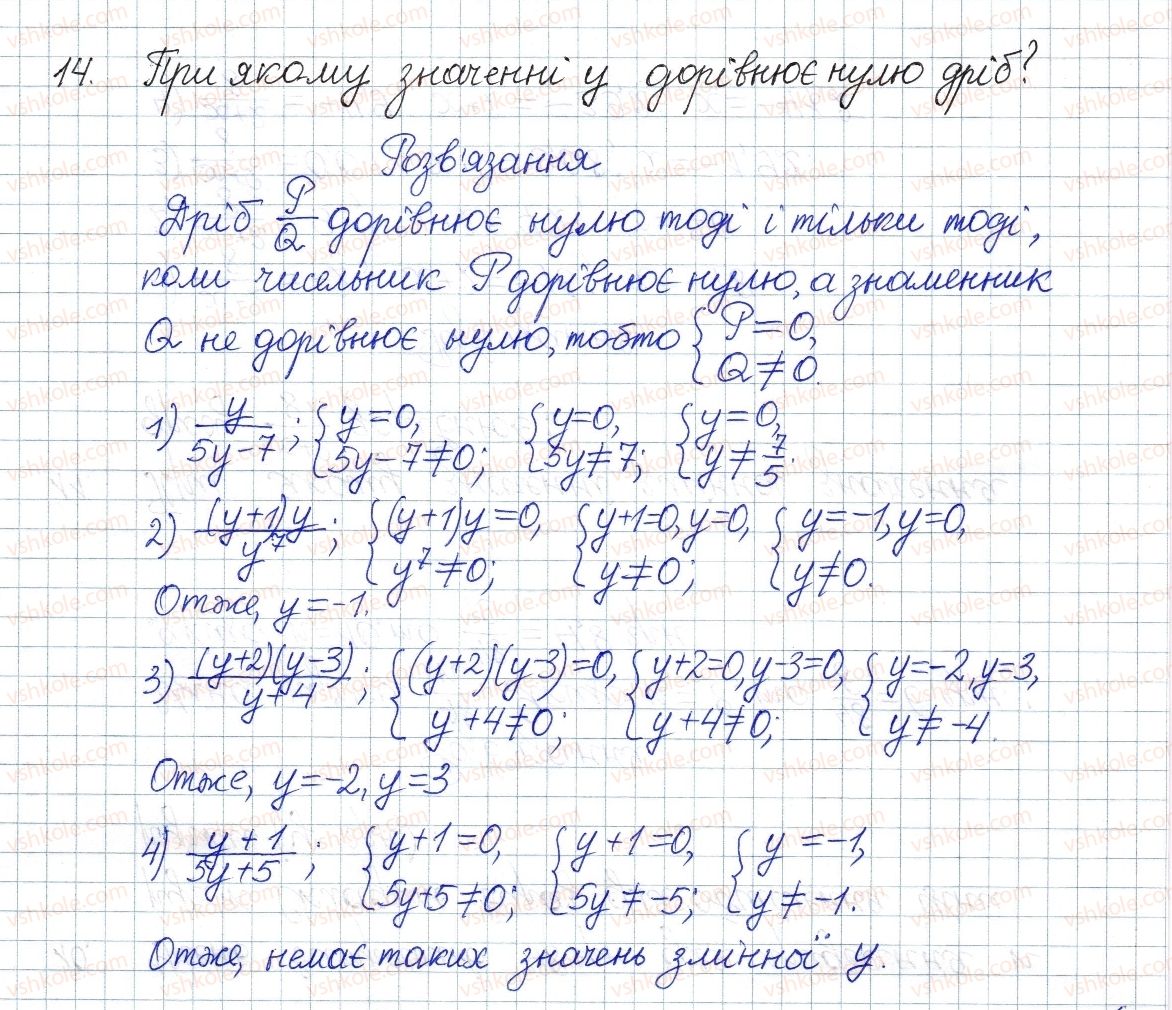 14. При якому значенні y дорівнює нулю дріб?
Розв'язання
Дріб P/Q дорівнює нулю тоді і тільки тоді,
коли чисельник P дорівнює нулю, а знаменник
Q не дорівнює нулю, тобто { P=0, Q≠0.
1) y/(5y-7); { y=0, 5y-7≠0; { y=0, 5y≠7; { y=0, y≠7/5.
2) (y+1)y/y⁷; { (y+1)y=0, y⁷≠0; { y+1=0, y=0, y≠0; { y=-1, y=0, y≠0.
Отже, y=-1.
3) (y+2)(y-3)/(y+4); { (y+2)(y-3)=0, y+4≠0; { y+2=0, y-3=0, y+4≠0; { y=-2, y=3, y≠-4.
Отже, y=-2, y=3
4) (y+1)/(5y+5); { y+1=0, 5y+5≠0; { y+1=0, 5y≠-5; { y=-1, y≠-1.
Отже, немає таких значень змінної y.